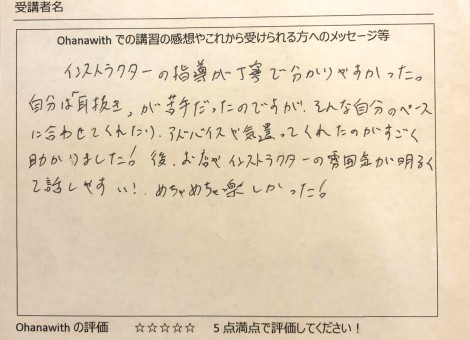 受講者名
Ohanawith での講習の感想やこれから受けられる方へのメッセージ等
インストラクターの指導が丁寧で分かりやすかった。
自分は「耳抜き」が苦手だったのですが、そんな自分のペース
に合わせてくれたり、アドバイスや気遣ってくれたのがすごく
助かりました！後、お店やインストラクターの雰囲気が明るく
て話しやすい！、めちゃめちゃ楽しかった！
Ohanawith の評価 ☆☆☆☆☆ 5 点満点で評価してください！